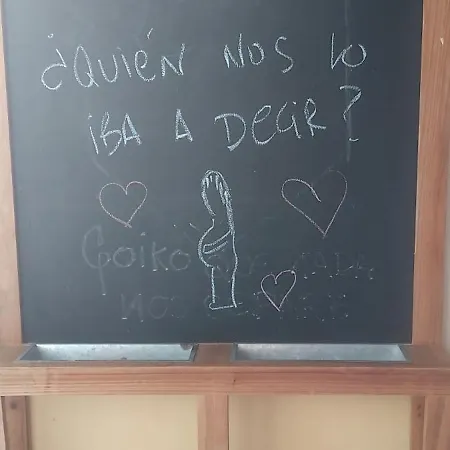 ¿Quién nos lo
iba a decir?
Goiko
nos